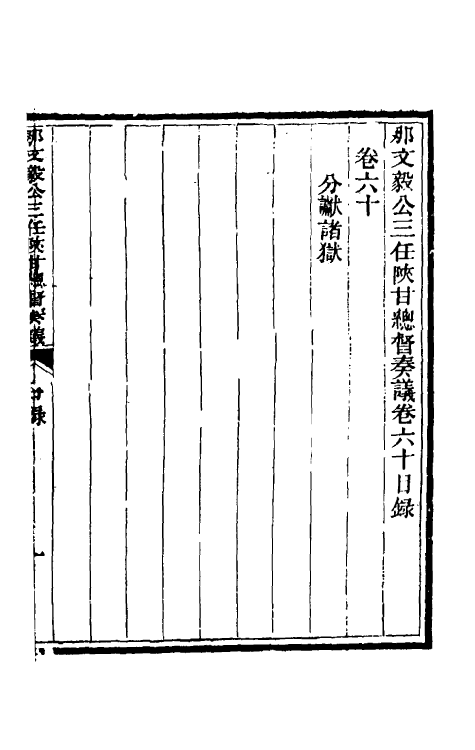 那文毅公三任陜甘總督奏議卷六十目録
卷六十
分讞諸獄
那文毅公三任陜甘總督奏議
目録
一